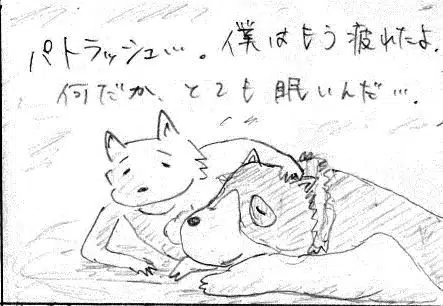 パトラッシュ…。僕はもう疲れたよ
何だか、とても眠いんだ…。